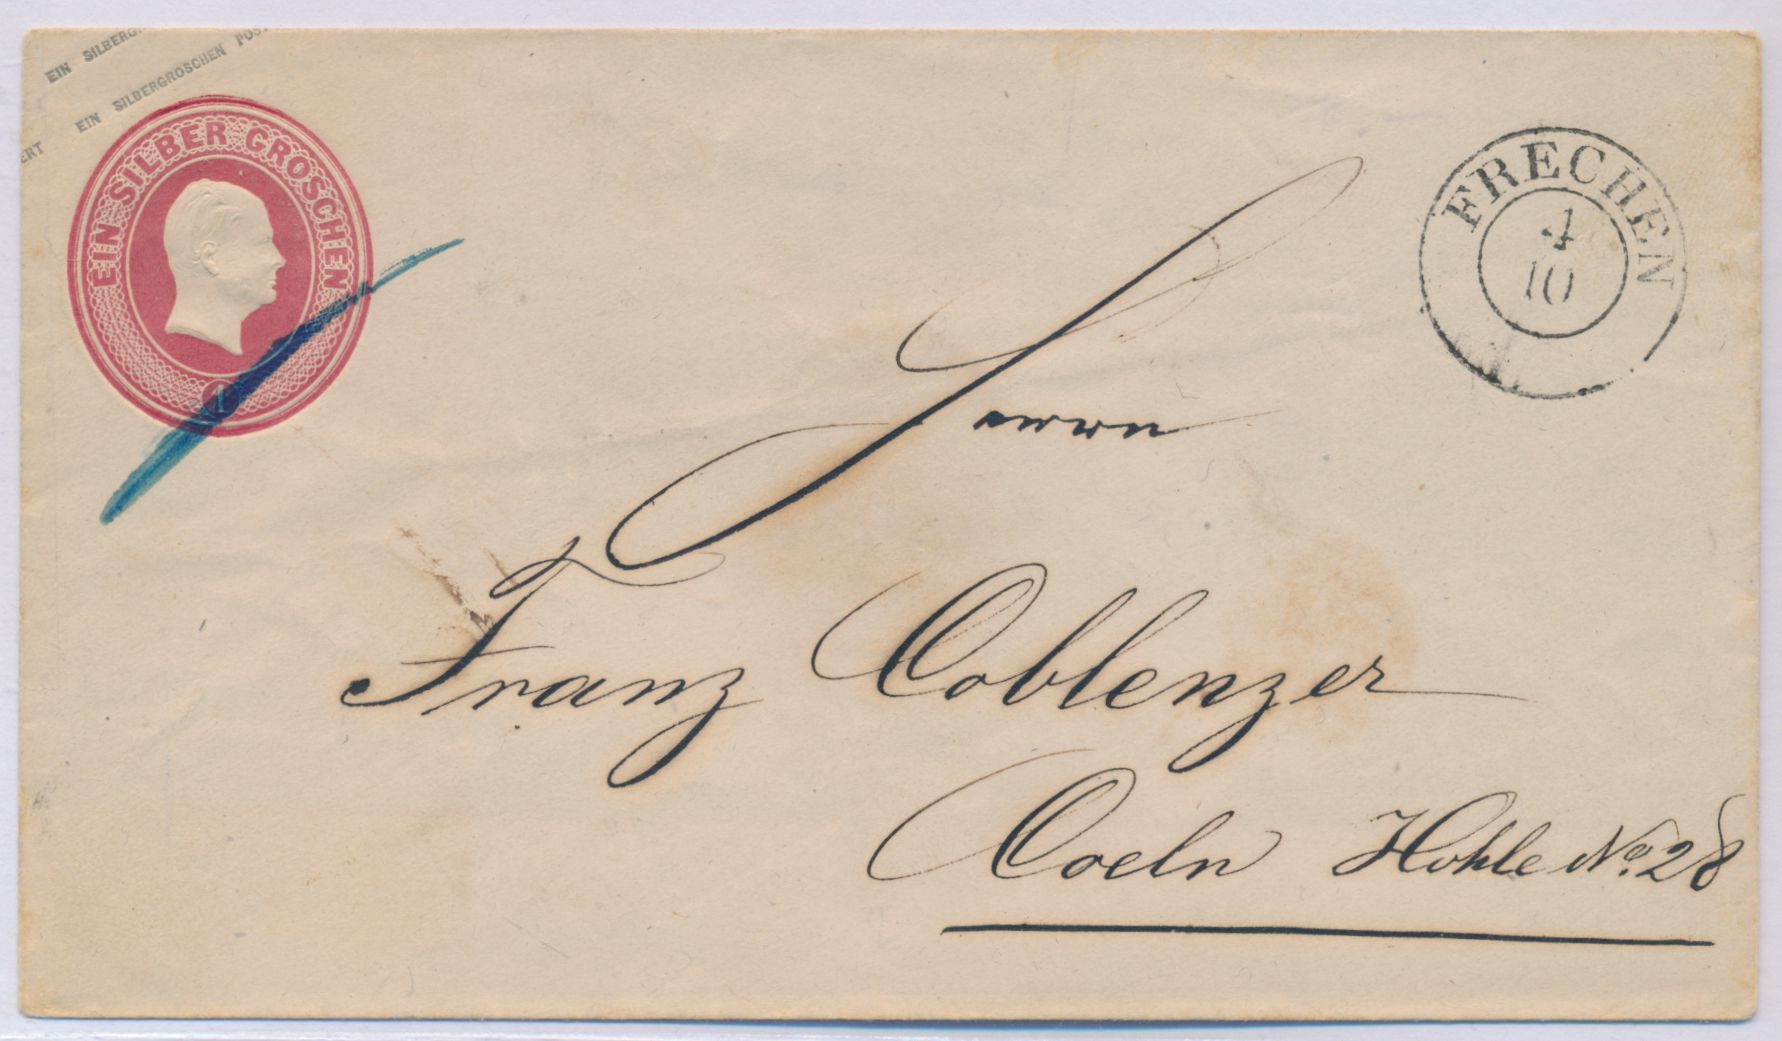 EIN SILBERG
EIN SILBERGROSCHEN POST
ERT
EIN SILBER GROSCHEN
1
FRECHEN
4
10
Herrn
Franz Coblenzer
Coeln Hohle No. 28